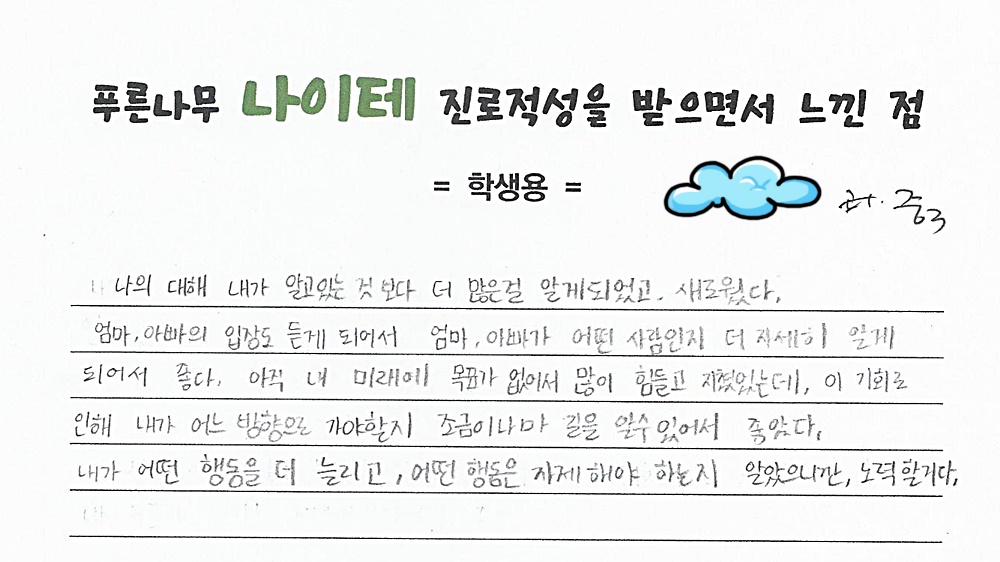 푸른나무 나이테 진로적성을 받으면서 느낀 점
= 학생용 =
중3
나의 대해 내가 알고있는 것 보다 더 많은걸 알게되었고, 새로웠다.
엄마, 아빠의 입장도 듣게 되어서 엄마, 아빠가 어떤 사람인지 더 자세히 알게
되어서 좋다. 아직 내 미래에 목표가 없어서 많이 힘들고 지쳤있는데, 이 기회로
인해 내가 어느 방향으로 가야할지 조금이나마 길을 알수있어서 좋았다.
내가 어떤 행동을 더 늘리고, 어떤 행동은 자제해야 하는지 알았으니깐, 노력할거다.